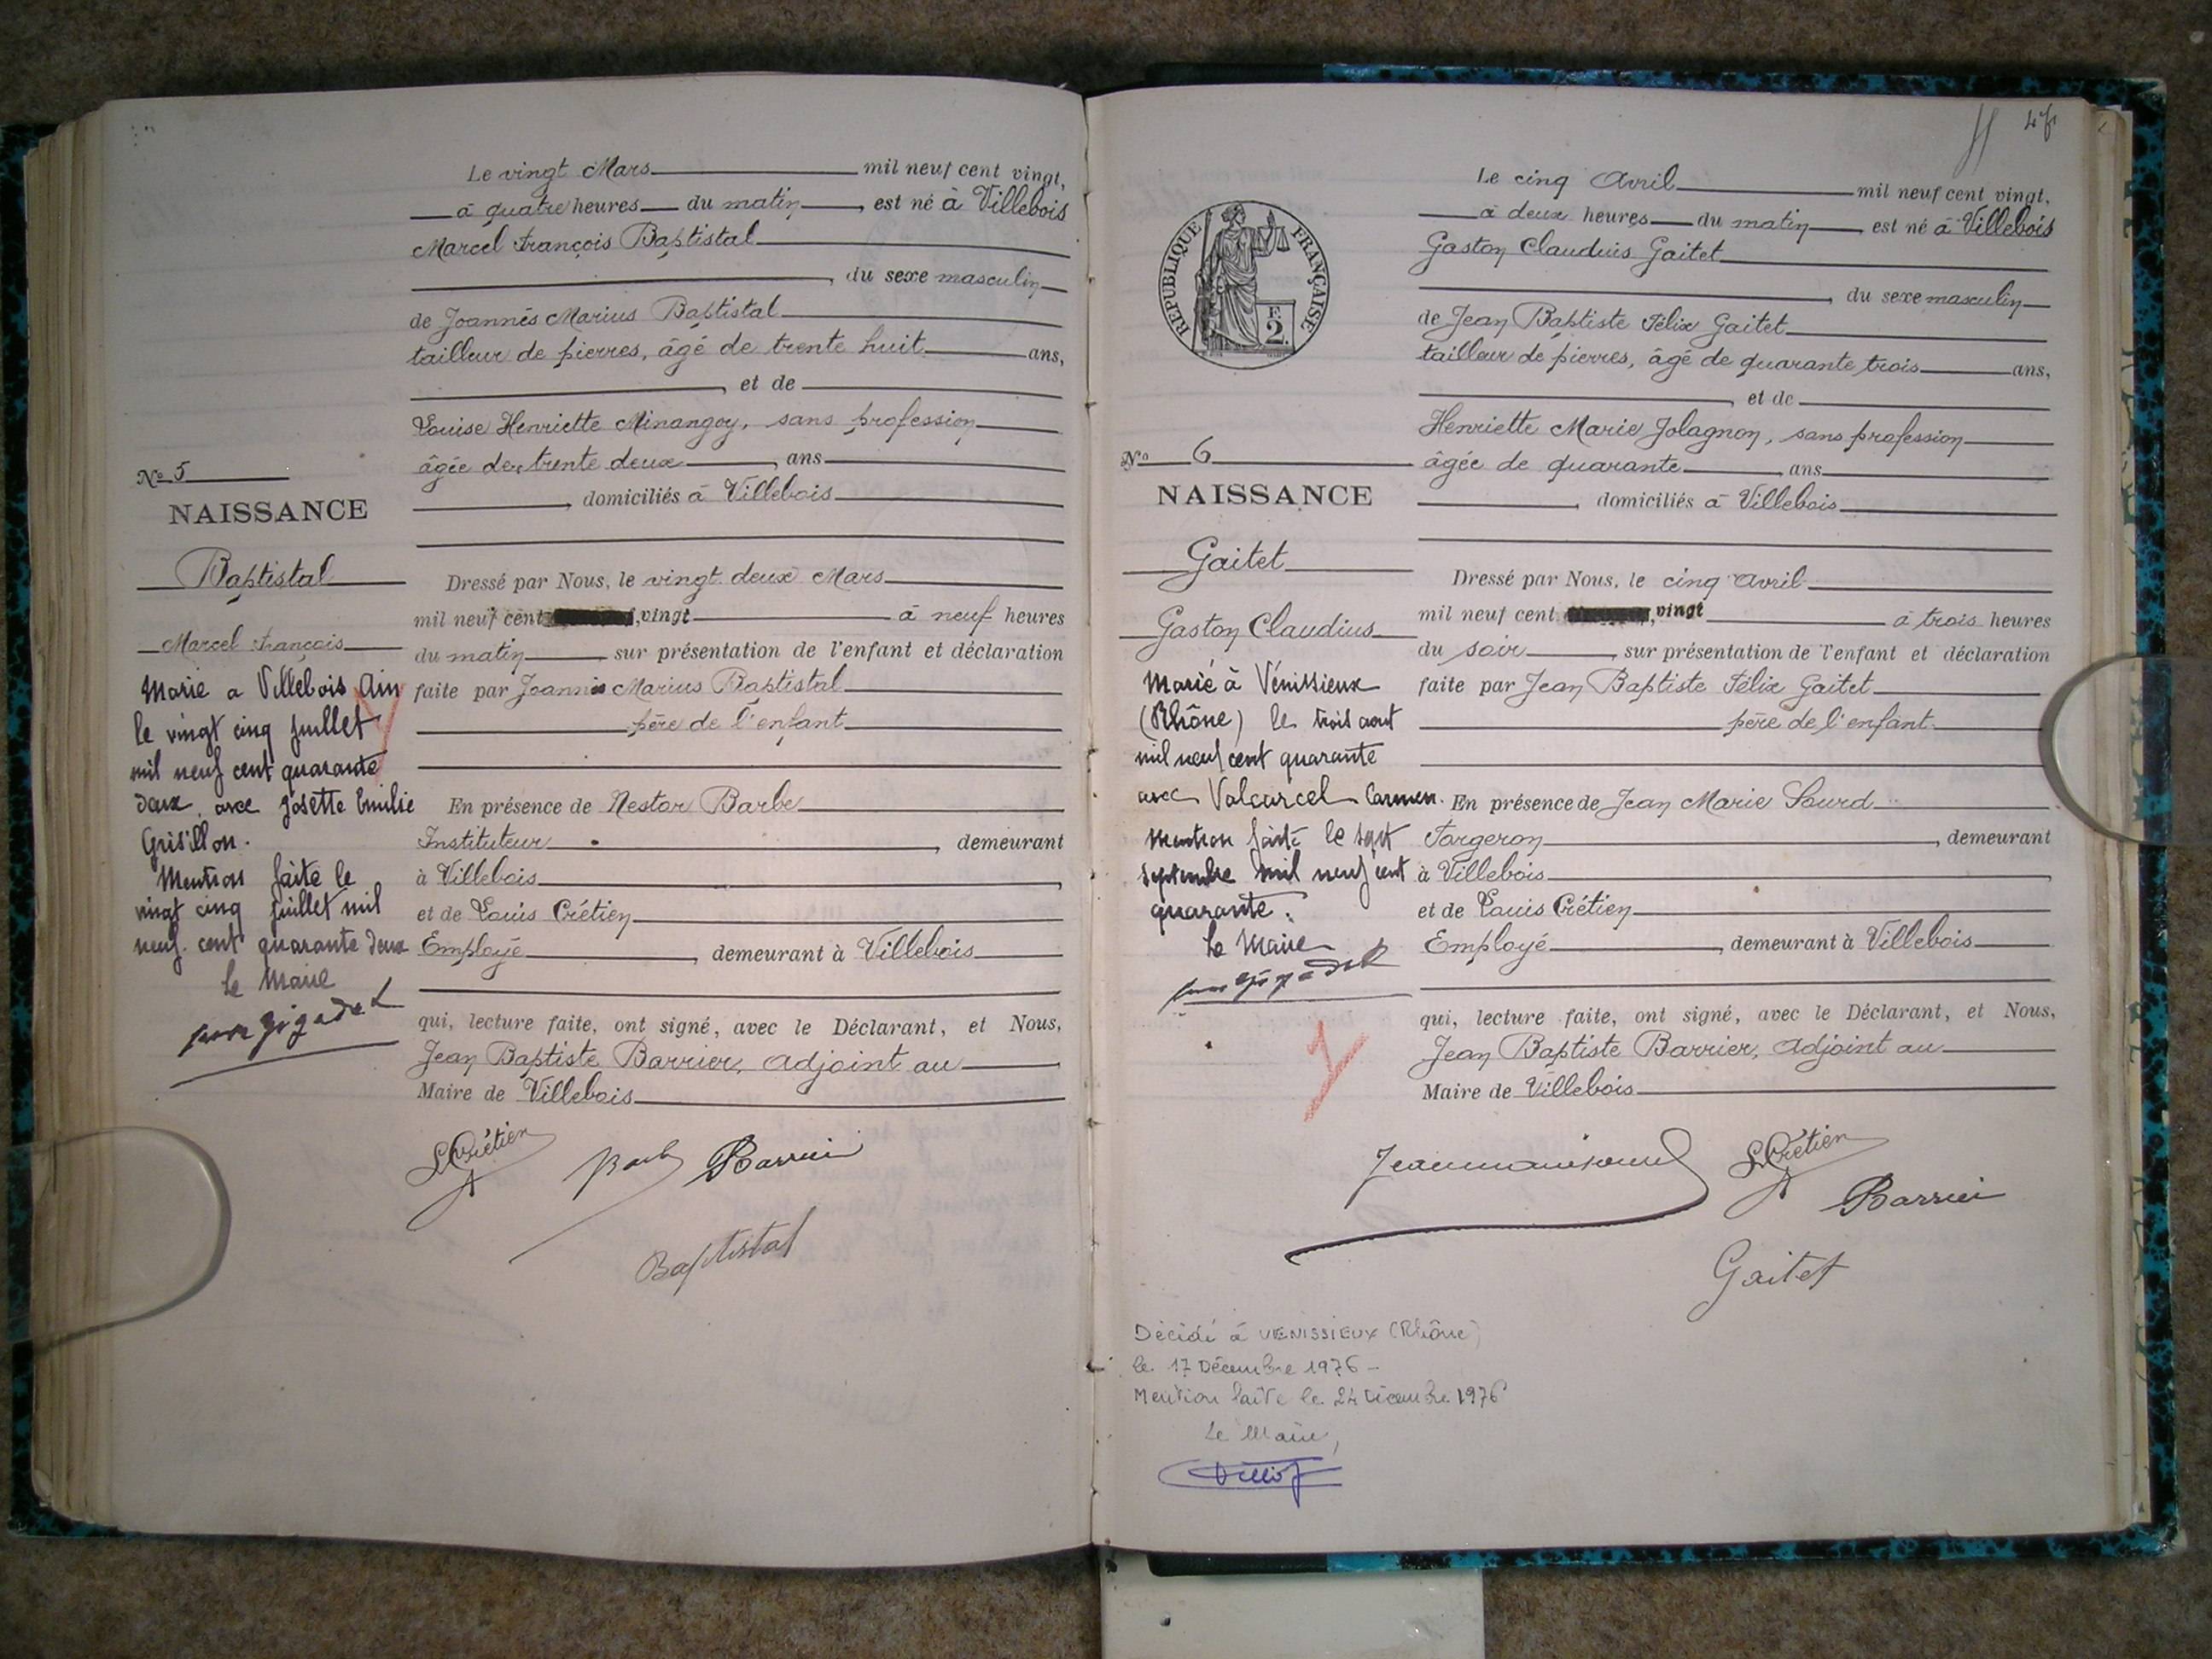 Le vingt Mars mil neuf cent vingt,
à quatre heures du matin, est né à Villebois
Marcel François Baptistal
, du sexe masculin
de Joannès Marius Baptistal
tailleur de pierres, âgé de trente huit ans,
, et de
Louise Henriette Minangoy, sans profession
âgée de trente deux, ans
, domiciliés à Villebois
Nº 5
NAISSANCE
Baptistal
Marcel François
Marié a Villebois Ain
le vingt cinq juillet
mil neuf cent quarante
deux, avec Josette Emilie
Grisillon.
Mention faite le
vingt cinq juillet mil
neuf cent quarante deux
Le Maire
Dressé par Nous, le vingt deux Mars
mil neuf cent, vingt à neuf heures
du matin sur présentation de l'enfant et déclaration
faite par Joannès Marius Baptistal
père de l'enfant
En présence de Nestor Barbe
Instituteur, demeurant
à Villebois,
et de Louis Crétien
Employé, demeurant à Villebois
qui, lecture faite, ont signé, avec le Déclarant, et Nous,
Jean Baptiste Barrier, adjoint au
Maire de Villebois
LCrétien
Barbe
Barrier
Baptistal
47
RÉPUBLIQUE FRANÇAISE
F.
2.
Le cinq Avril mil neuf cent vingt,
à deux heures du matin, est né à Villebois
Gaston Claudius Gaitet
, du sexe masculin
de Jean Baptiste Félix Gaitet
tailleur de pierres, âgé de quarante trois ans,
, et de
Henriette Marie Jolagnon, sans profession
âgée de quarante, ans
, domiciliés à Villebois
Nº 6
NAISSANCE
Gaitet
Gaston Claudius
Marié à Vénissieux
(Rhône) le trois aout
mil neuf cent quarante
avec Valcarcel Carmen.
Mention faite le sept
septembre mil neuf cent
quarante.
Le Maire
Dressé par Nous, le cinq avril
mil neuf cent, vingt à trois heures
du soir, sur présentation de l'enfant et déclaration
faite par Jean Baptiste Félix Gaitet
père de l'enfant
En présence de Jean Marie Sourd
Forgeron, demeurant
à Villebois,
et de Louis Crétien
Employé, demeurant à Villebois
qui, lecture faite, ont signé, avec le Déclarant, et Nous,
Jean Baptiste Barrier, adjoint au
Maire de Villebois
Jeanmariesourd
LCrétien
Barrier
Gaitet
Décédé à VENISSIEUX (Rhône)
le 17 Décembre 1976 -
Mention faite le 24 Décembre 1976
Le Maire,